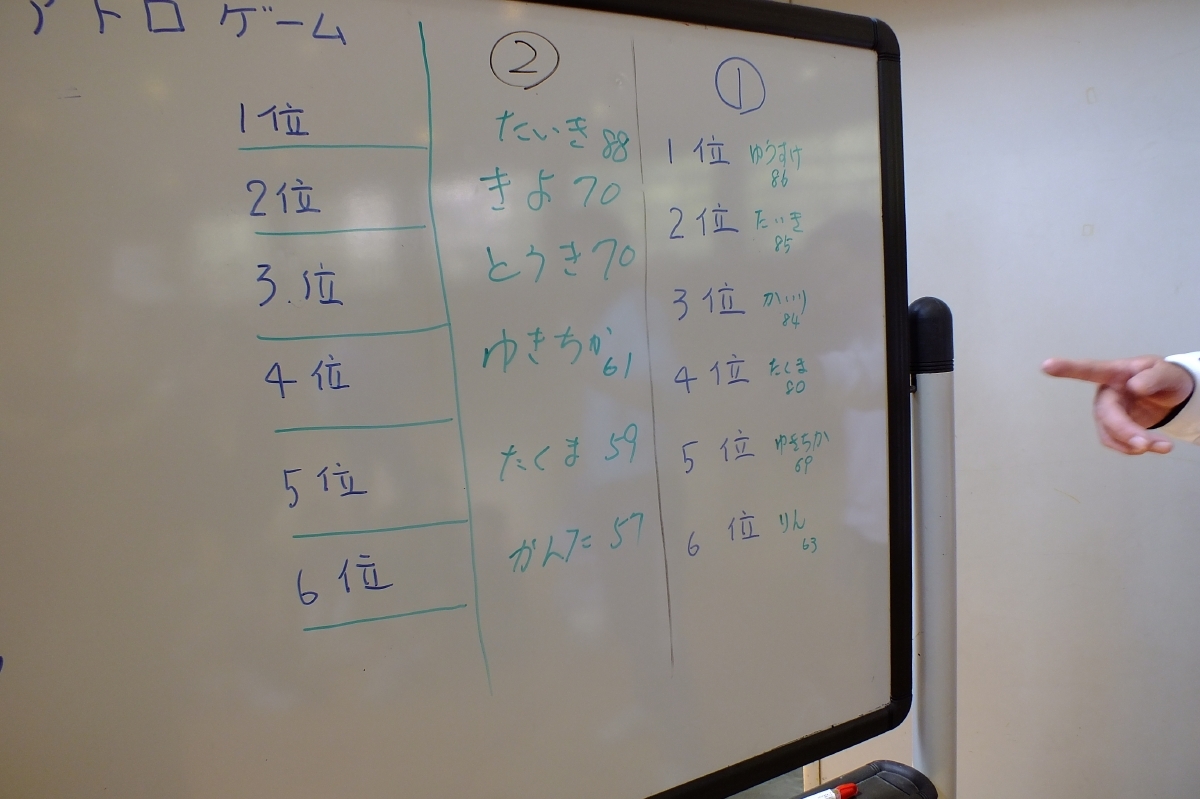 アトロゲーム
1位
2位
3.位
4位
5位
6位
②
たいき 88
きよ 70
とうき 70
ゆきちか 61
たくま 59
かんた 57
①
1位 ゆうすけ 86
2位 たいき 85
3位 かいり 84
4位 たくま 80
5位 ゆきちか 69
6位 りん 63